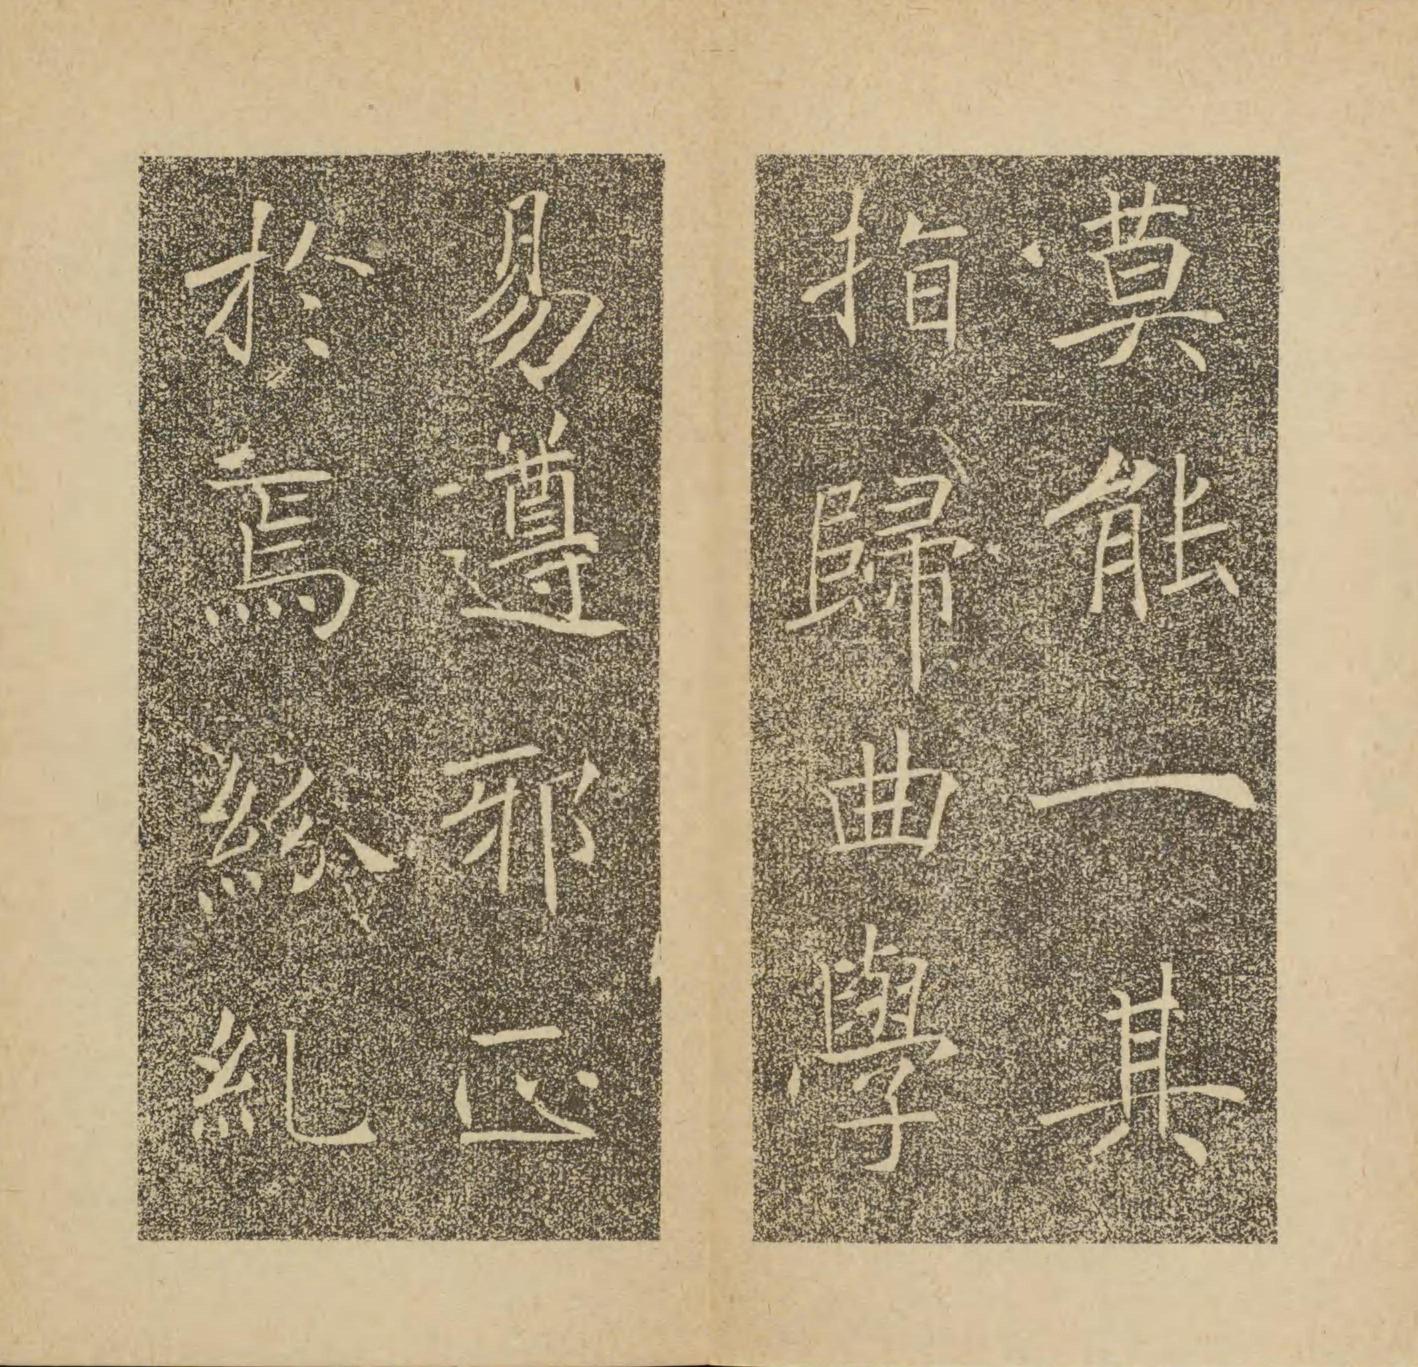 莫能一其
指歸曲學
易遵邪正
於焉紛糺